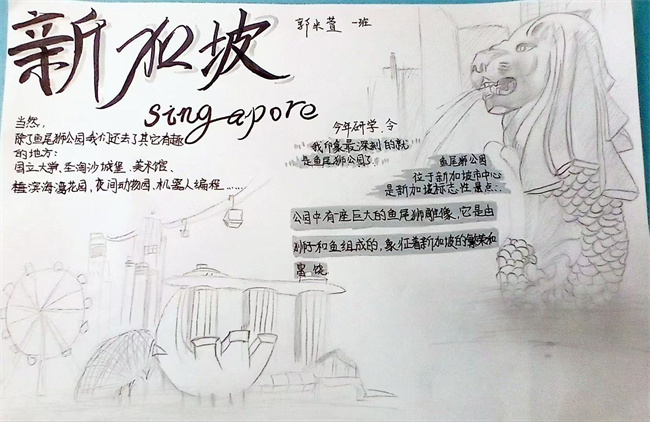 新加坡
singapore
郭米萱 一班
当然，
除了鱼尾狮公园我们还去了其它有趣
的地方：
国立大学、圣淘沙城堡、美术馆、
滨海湾花园，夜间动物园，机器人编程……
今年研学，令
我印象最深刻的就
是鱼尾狮公园了
鱼尾狮公园
位于新加坡市中心
是新加坡标志性景点：
公园中有一座巨大的鱼尾狮雕像，它是由
狮子和鱼组成的，象征着新加坡的繁荣和